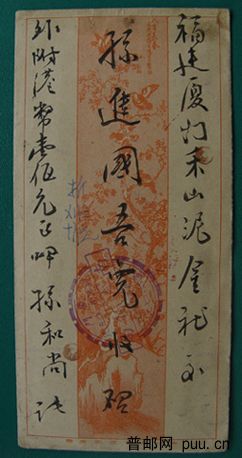 福建厦门禾山泥金社交
孫進國吾兒收啓
外附港幣壹佰元正呷 孫和尚 託
普邮网 puu.cn